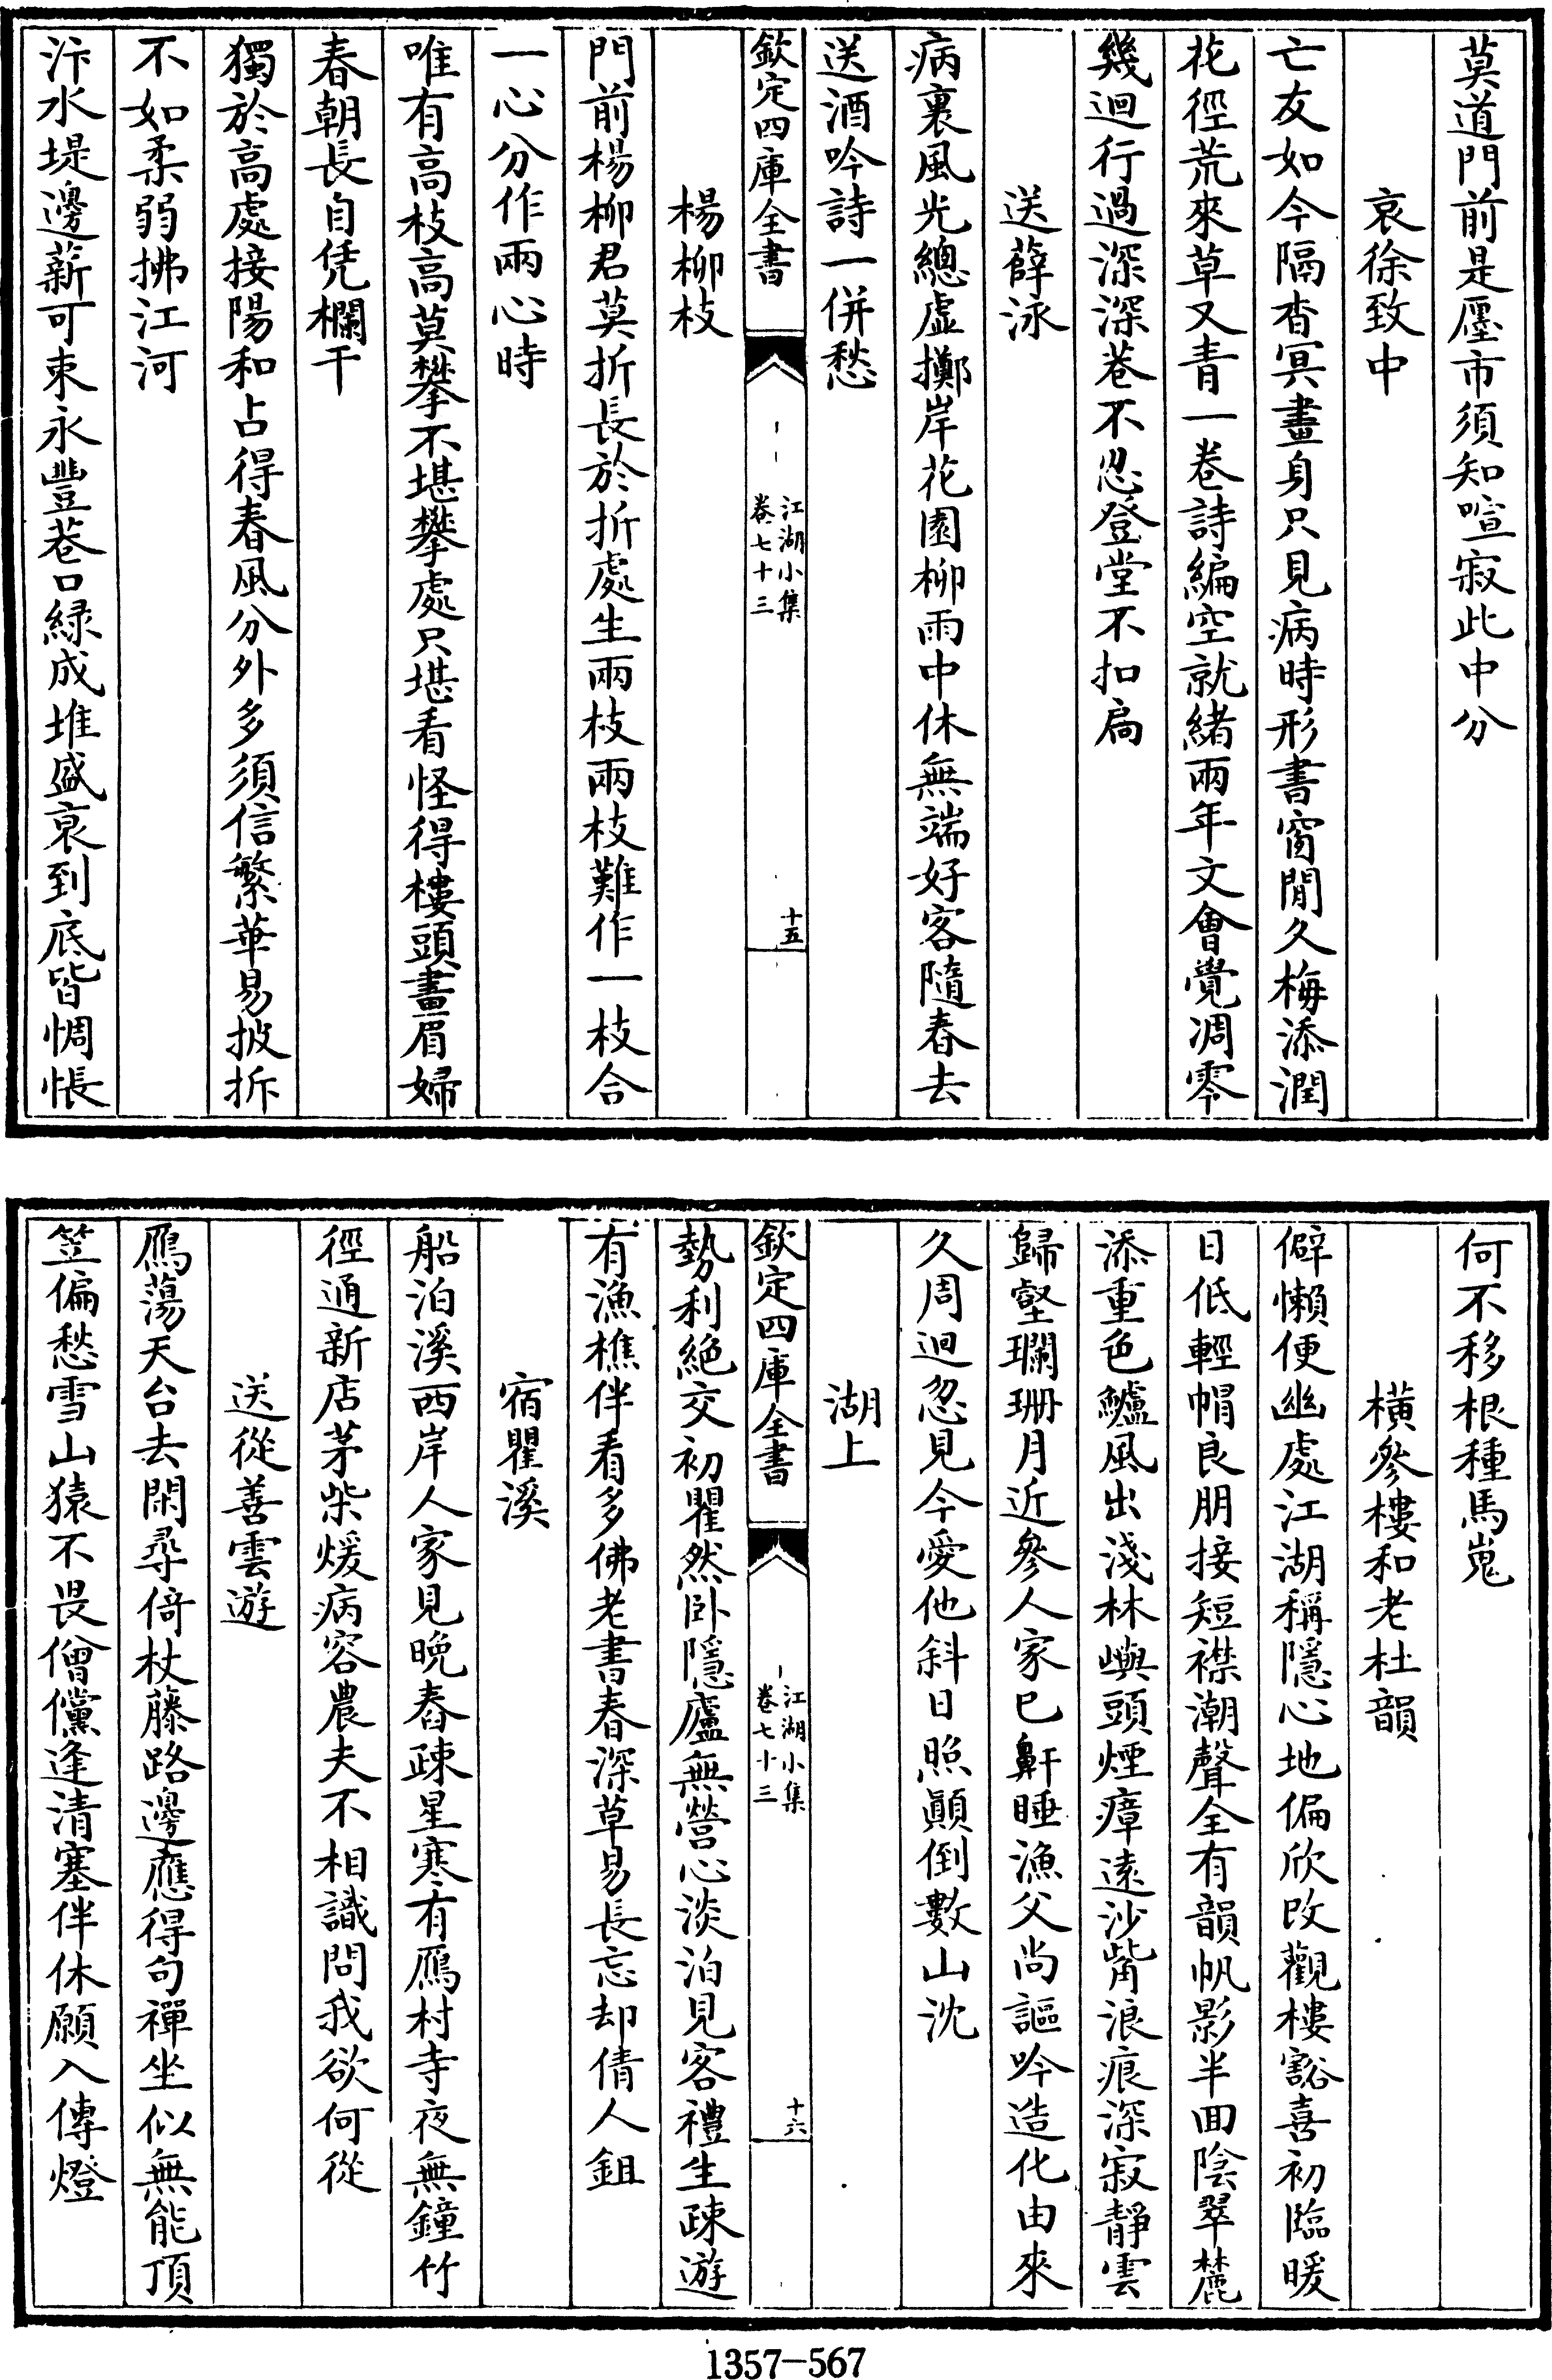 莫道門前是㕓市須知喧寂此中分
哀徐致中
亡友如今隔杳冥畫身只見病時形書窗閒久梅添潤
花徑荒來草又青一卷詩編空就緒兩年文會覺凋零
幾迴行過深深巷不忍登堂不扣扃
送薛泳
病裏風光總虛擲岸花園柳雨中休無端好客隨春去
送酒吟詩一併愁
欽定四庫全書
江湖小集
卷七十三
十五
楊柳枝
門前楊柳君莫折長於折處生兩枝兩枝難作一枝合
一心分作兩心時
唯有高枝高莫攀不堪攀處只堪看怪得樓頭畫眉婦
春朝長自凭欄干
獨於高處接陽和占得春風分外多須信繁華易披拆
不如柔弱拂江河
汴水堤邊薪可束永豐巷口緑成堆盛衰到底皆惆悵
何不移根種馬嵬
橫參樓和老杜韻
僻懶便幽處江湖稱隱心地偏欣改觀樓豁喜初臨暖
日低輕帽良朋接短襟潮聲全有韻帆影半回陰翠麓
添重色鱸風出淺林嶼頭煙瘴遠沙觜浪痕深寂靜雲
歸壑斓珊月近參人家已鼾睡漁父尚謳吟造化由來
久周迴忽見今愛他斜日照顚倒數山沈
湖上
欽定四庫全書
江湖小集
卷七十三
十六
勢利絕交初瞿然卧隱廬無營心淡泊見客禮生疎遊
有漁樵伴看多佛老書春深草易長忘却倩人鉏
宿瞿溪
船泊溪西岸人家見晚舂疎星寒有鴈村寺夜無鐘竹
徑通新店茅柴煖病容農夫不相識問我欲何從
送從善雲遊
鴈蕩天台去閑尋倚杖藤路邊應得句禪坐似無能頂
笠偏愁雪山猿不畏僧儻逢清塞伴休願入傳燈
1357-567